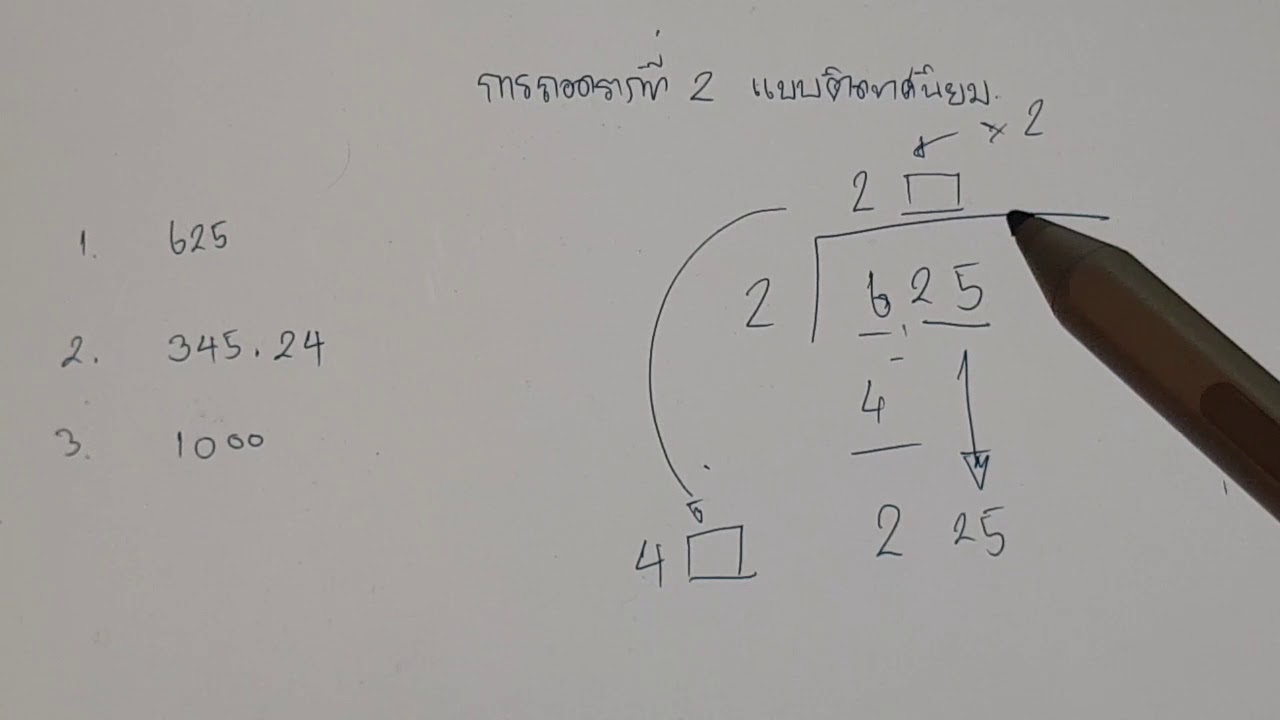 การถอดรากที่ 2 แบบติดทศนิยม.
× 2
2
1. 625
2. 345.24
3. 1000
2 625
4
2 25
4